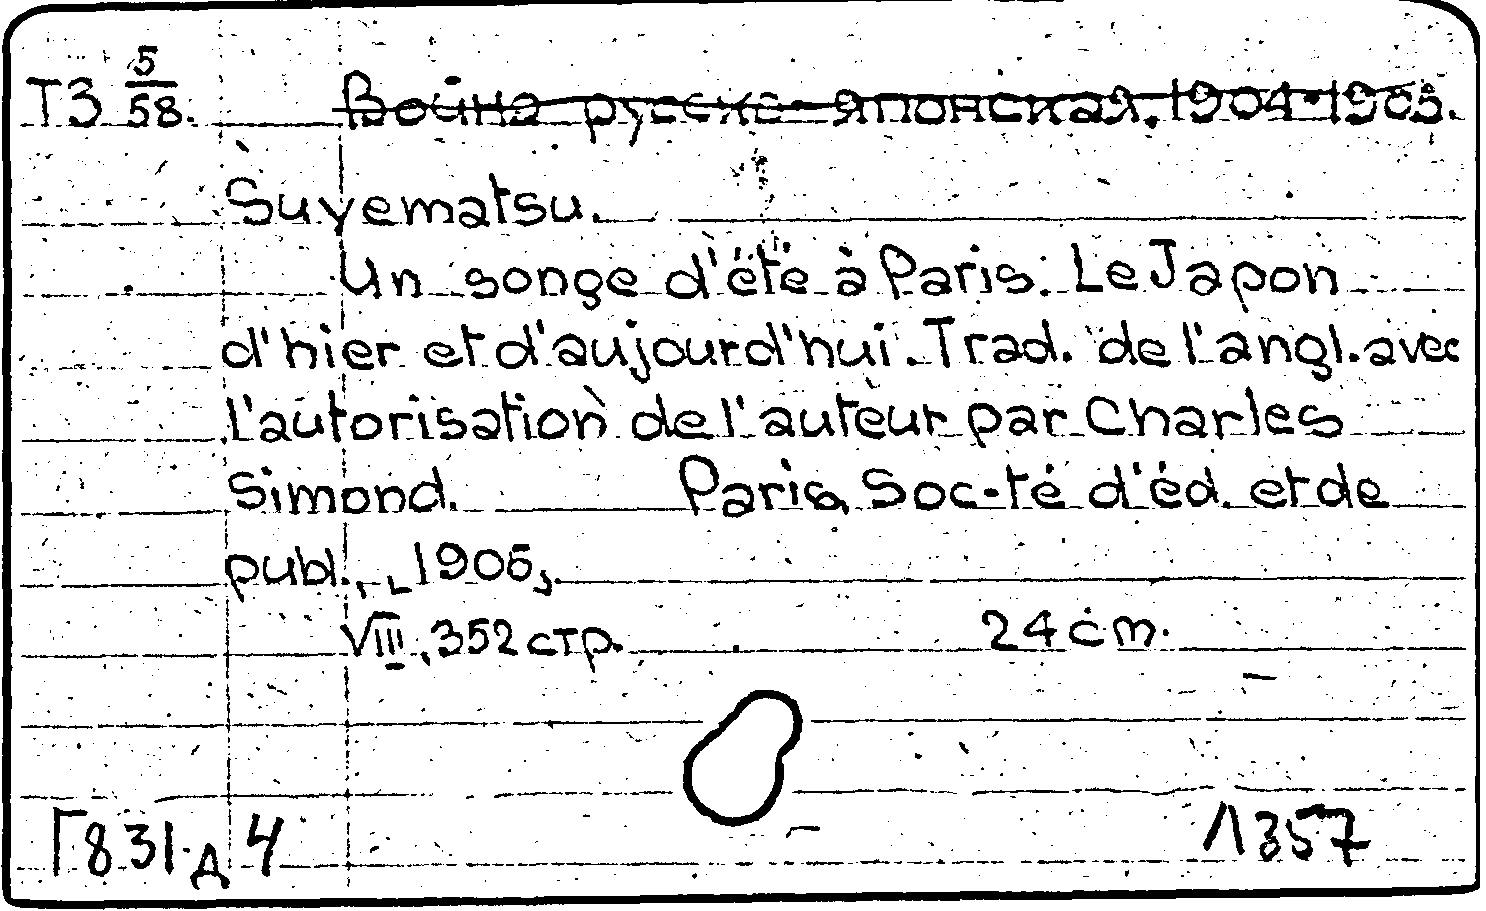 Т3 5/58. Война русско-японская. 1904-1905.
Suyematsu.
Un songe d'été à Paris. Le Japon
d'hier et d'aujourd'hui. Trad. de l'angl. avec
l'autorisation de l'auteur par Charles
Simond. Paris, Soc-té d'éd. et de
publ., 1905,
VIII, 352 стр. 24 cm.
Г831.д 4 Л357